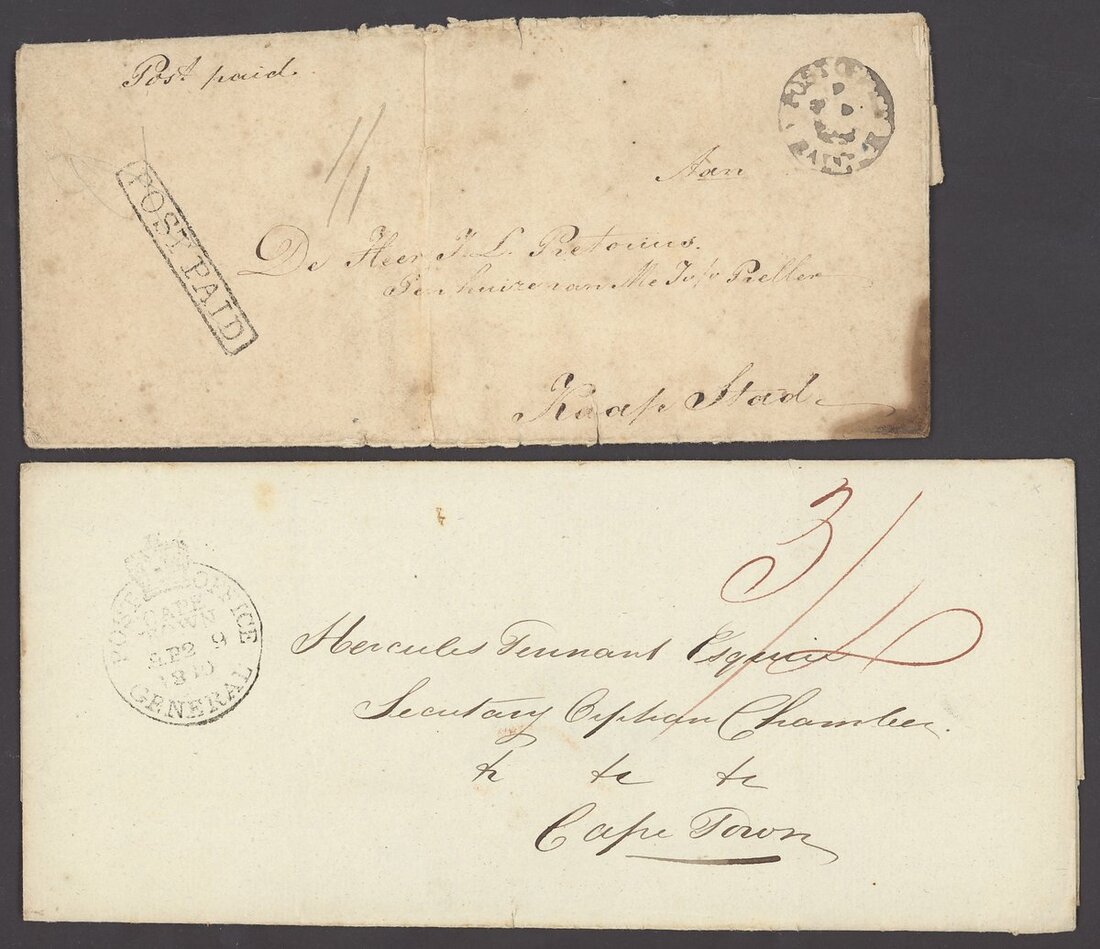 Post paid.
POST OFFICE
PAID
POST PAID
1/1
Aan
De Heer J. L. Retorius.
Ten huize van Me
Kaap Stad
POST OFFICE
CAPE
TOWN
SP2 9
GENERAL
3/
Hercules Tennant Esquire
Secretary Orphan Chamber.
&c &c &c
Cape Town